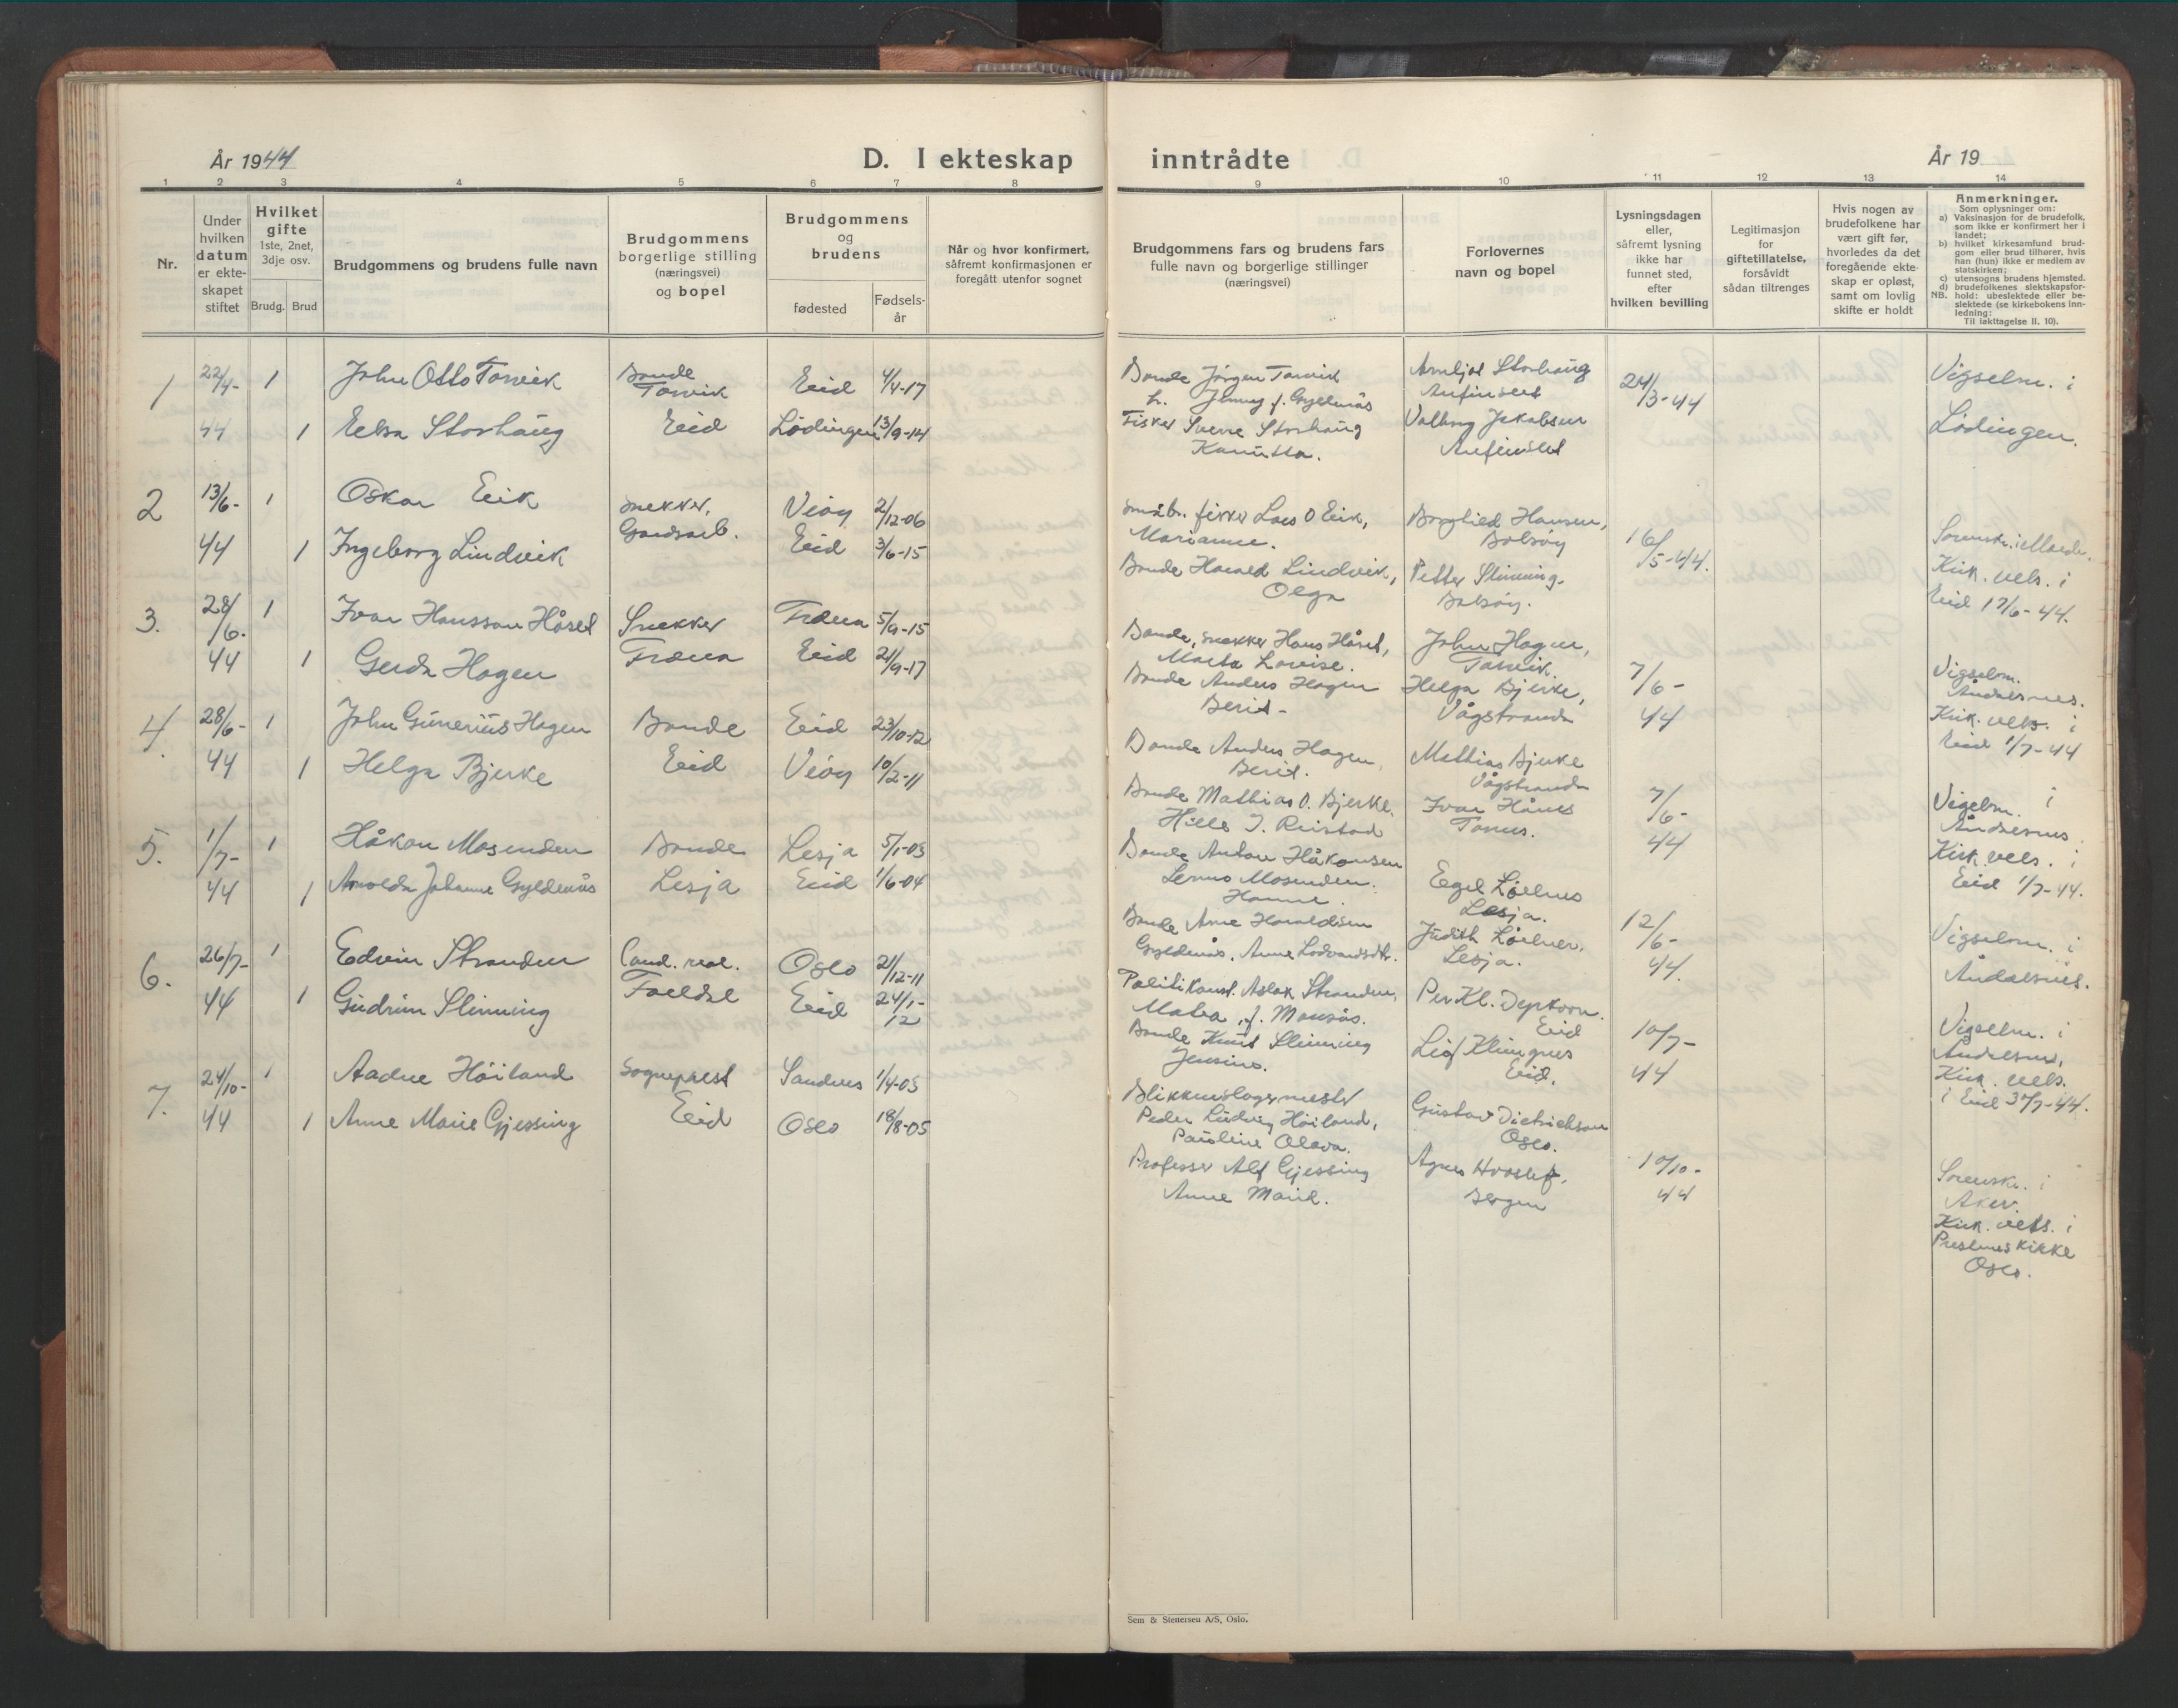 År 1944
D. I ekteskap inntrådte
År 19
1 2 3 4 5 6 7 8 9 10 11 12 13 14
Nr.
Under
hvilken
datum
er ekte-
skapet
stiftet
Hvilket
gifte
1ste, 2net,
3dje osv.
Brudg. Brud
Brudgommens og brudens fulle navn
Brudgommens
borgerlige stilling
(næringsvei)
og bopel
Brudgommens
og
brudens
fødested
Fødsels-
år
Når og hvor konfirmert,
såfremt konfirmasjonen er
foregått utenfor sognet
Brudgommens fars og brudens fars
fulle navn og borgerlige stillinger
(næringsvei)
Forlovernes
navn og bopel
Lysningsdagen
eller,
såfremt lysning
ikke har
funnet sted,
efter
hvilken bevilling
Legitimasjon
for
giftetillatelse,
forsåvidt
sådan tiltrenges
Hvis nogen av
brudefolkene har
vært gift før,
hvorledes da det
foregående ekte-
skap er opløst,
samt om lovlig
skifte er holdt
Anmerkninger.
Som oplysninger om:
a) Vaksinasjon for de brudefolk,
som ikke er konfirmert her i
landet;
b) hvilket kirkesamfund brud-
gom eller brud tilhører, hvis
han (hun) ikke er medlem av
statskirken;
c) utensogns brudens hjemsted.
d) brudefolkenes slektskapsfor-
NB. hold: ubeslektede eller be-
slektede (se kirkebokens inn-
ledning:
Til iakttagelse II. 10).
1 22/4- 1 John Otto Torvik Bonde Eid 4/4-17
Torvik
44 1 Storhaug Eid Lödingen 13/9-14
Bonde Jörgen Torvik
Jenny f. Gyldenås
Fisker Sverre Storhaug
Storhaug
Valborg Jakobsen
24/3-44
Vigselm. i
Lödingen.
2 13/6- 1 Oskar Eik Snekker, Veöy 2/12-06
44 1 Ingeborg Lindvik Eid 3/6-15
Småbr. fisker Lars O Eik,
Marianne.
Bonde Harald Lindvik,
Olga
Borghild Hansen,
Bolsöy
Petter Slinning.
Bolsöy.
16/5-44.
Sorenskr. i
Kirk. vels. i
Eid 17/6-44.
3. 28/6- 1 Ivar Hansson Håset Snekker Træna 5/9-15
44 1 Gerda Hagen Træna Eid 21/9-17
Bonde, snekker Hans Håset,
Marta Lovise.
Bonde Anders Hagen
Berit.
John Hagen,
Torvik.
Helga Bjerke,
Vågstranda
7/6-
44
Vigselm.
Åndalsnes.
Kirk. vels. i
Eid 1/7-44
4. 28/6- 1 John Gunerius Hagen Bonde Eid 23/10-12
44 1 Helga Bjerke Eid Veöy 10/2-11
Bonde Anders Hagen,
Berit.
Bonde Mathias O. Bjerke.
Mathias Bjerke
Vågstranda
Ivar
7/6-
44
Vigselm. i
Åndalsnes.
Kirk. vels. i
Eid 1/7-44.
5. 1/7- 1 Håkon Mosenden Bonde Lesja 5/1-03
44 1 Johanne Gyldenås Lesja Eid 1/6-04
Bonde Anton Håkonsen
Mosenden.
Hanne.
Bonde Arne Haraldsen
Gyldenås.
Egil
Lesja.
Judith
Lesja.
12/6-
44.
Vigselm. i
Åndalsnes.
6. 26/7- 1 Edvin Stranden Cand. real. Oslo 21/12-11
44 1 Gudrun Slinning Eid 24/1-12
Politikonst. Aslak Stranden,
Bonde Knut Slinning
Per Kl. Dyrkorn.
Eid
Eid.
10/7-
44
Vigselm. i
Åndalsnes,
Kirk. vels.
i Eid 30/7-44.
7. 24/10- 1 Aadne Höiland Sogneprest Sandnes 1/4-03
44 1 Anne Marie Gjessing Eid Oslo 18/8-05
Blikkenslagermester
Peder Ludvig Höiland,
Professor Alf Gjessing
Anne Marie.
Gustav Dietrichson
Oslo.
Agnes
Bergen
10/10-
44
Sorenskr. i
Aker.
Kirk. vels. i
Prestenes kirke
Oslo.
Sem & Stenersen A/S, Oslo.